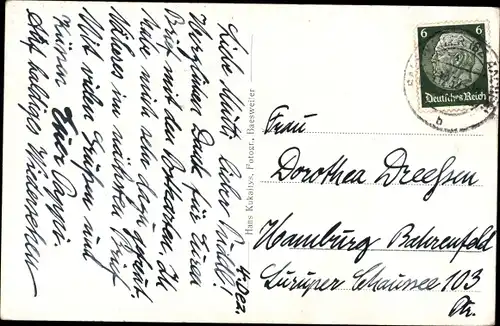 4. Dez.
Liebe Mutti, lieber Buddl!
Herzlichen Dank für Euren
Brief mit den Postkarten. Ich
habe mich sehr dazu gefreut.
Näheres im nächsten Brief
Mit vielen Grüßen und
Küssen Euer Pappi.
Auf baldiges Wiedersehen
Hans Kakaltys, Fotogr., Baesweiler
6 6
Deutsches Reich
b
Frau
Dorothea Dreeßen
Hamburg Bahrenfeld
Luruper Chaussee 103
Ptr.